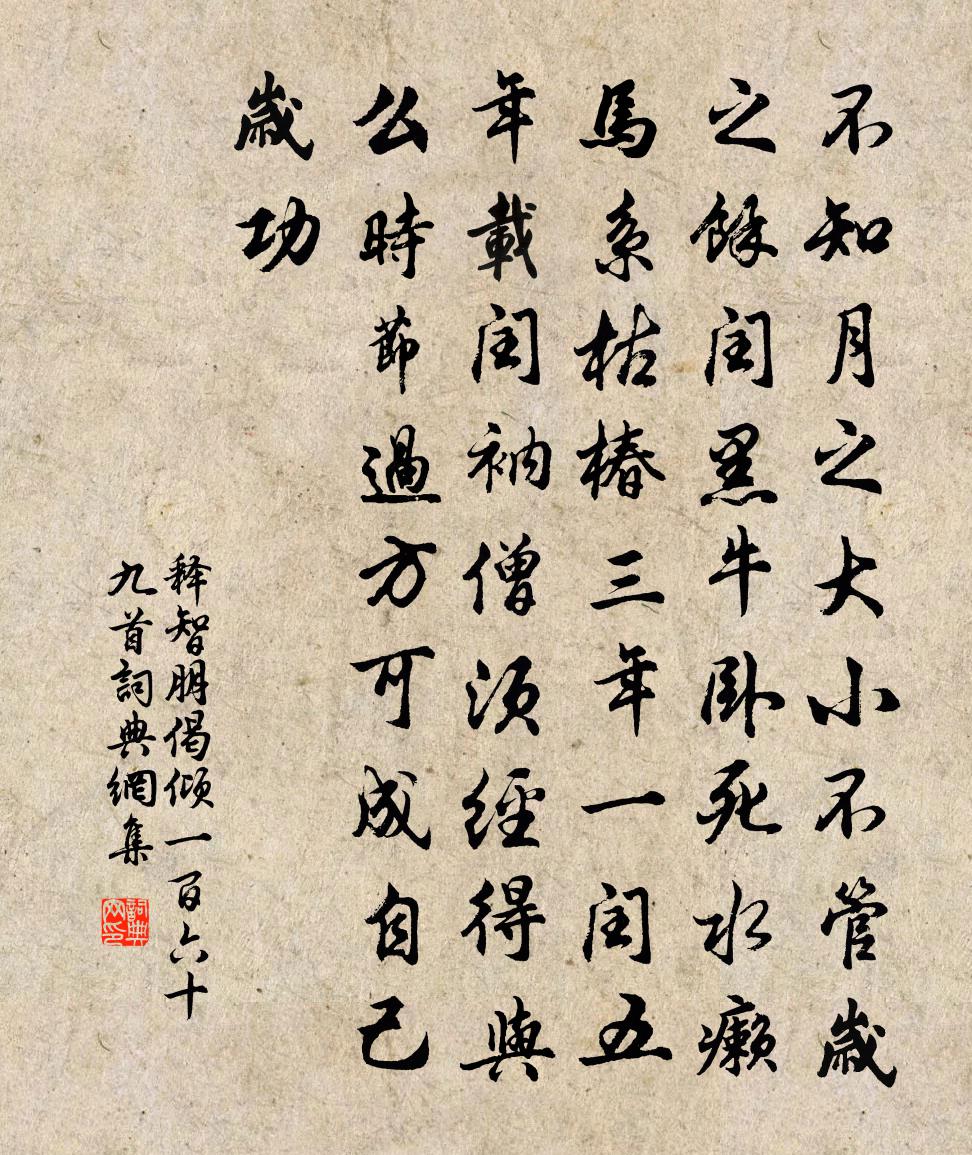 不知月之大小不管歲
之餘閏黑牛卧死水癩
馬系枯樁三年一閏五
年載閏衲僧須經得與
么時節過方可成自己
歲功
释智朋偈倾一百六十
九首詞典網集
詞典网印